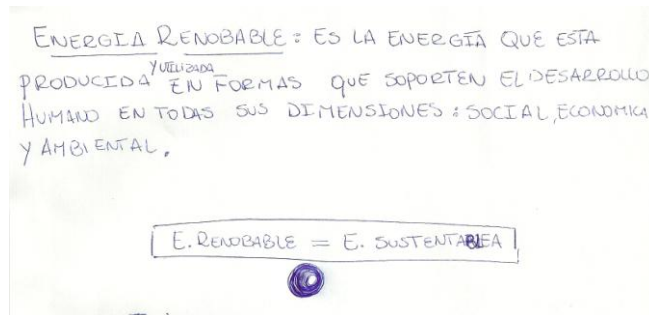 ENERGIA RENOBABLE: ES LA ENERGÍA QUE ESTA
PRODUCIDA Y UTILIZADA EN FORMAS QUE SOPORTEN EL DESARROLLO
HUMANO EN TODAS SUS DIMENSIONES: SOCIAL, ECONOMICA
Y AMBIENTAL.
E. RENOBABLE = E. SUSTENTABLE